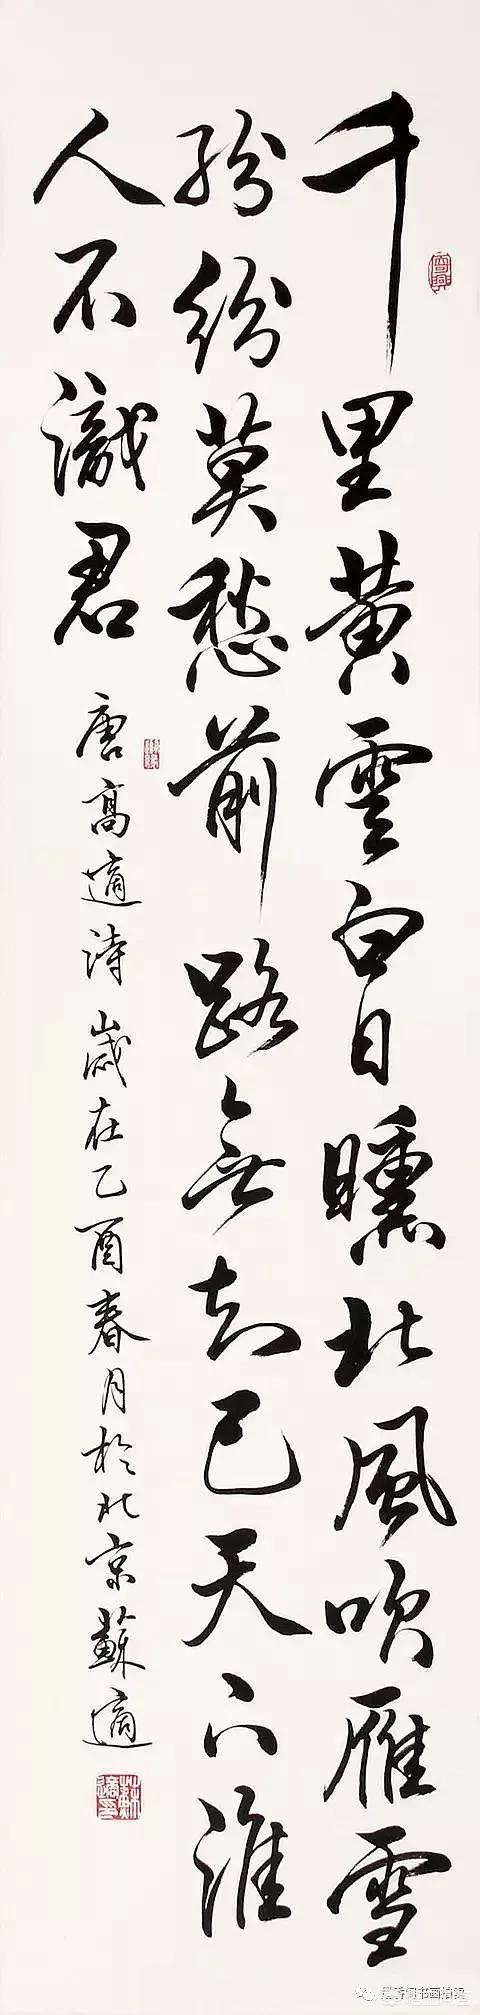 千里黄雲白日曛北風吹雁雪
紛紛莫愁前路無知己天下誰
人不識君
唐高適詩歲在乙酉春月於北京蘇適
蘇適